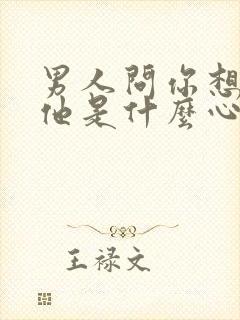 男人問你想
他是什麼心
王禄文